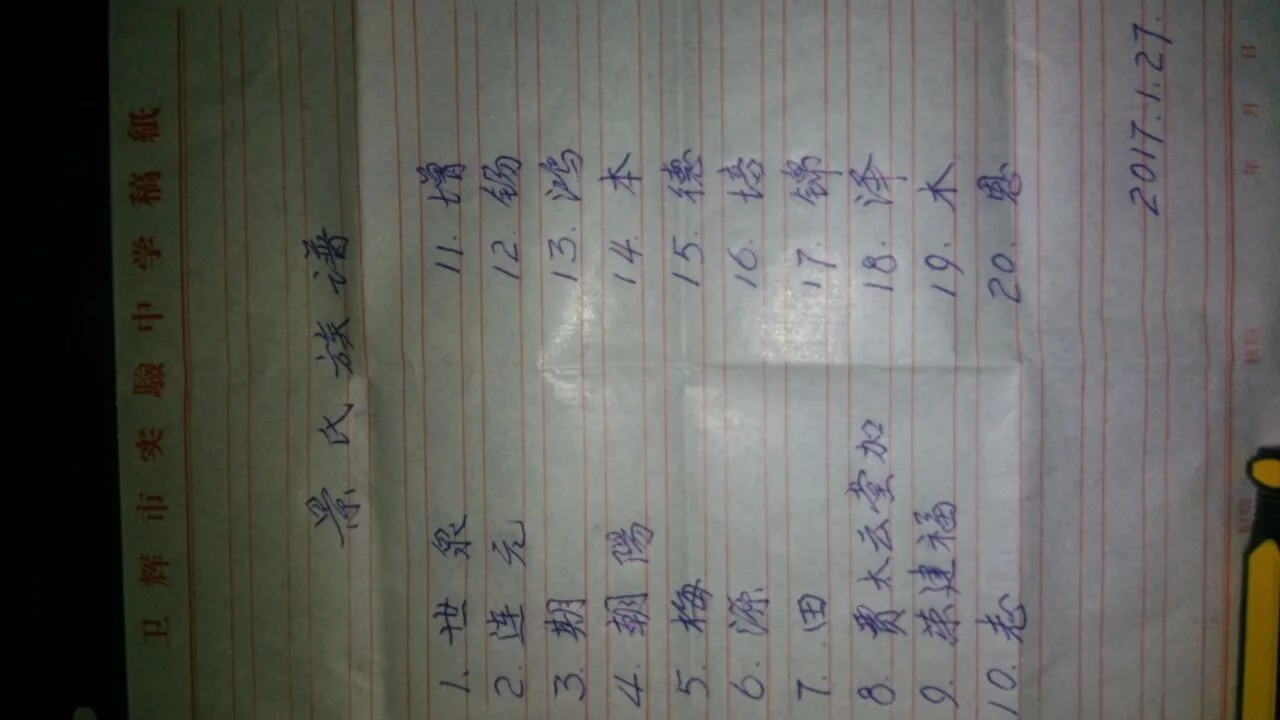 卫辉市实驗中学稿紙
景氏族谱
1. 世泉
2. 连元
3. 朝
4. 朝陽
5. 梅
6. 源
7. 田
8. 贵太云堂加
9. 荣建福
10. 志
11. 增
12. 锡
13. 鸿
14. 本
15. 德
16. 培
17. 锦
18. 泽
19. 木
20. 恩
2017.1.27.
年 月 日